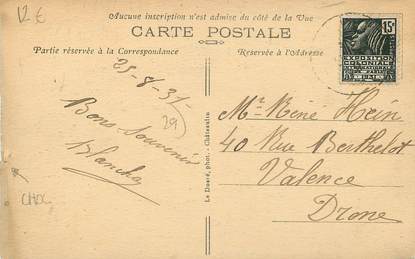 12 €
Aucune inscription n'est admise du côté de la Vue
CARTE POSTALE
Partie réservée à la Correspondance
Réservée à l'Adresse
15c
EXPOSITION
COLONIALE
INTERNATIONALE
PARIS
1931
25-8-31
(29)
Bons Souvenirs
Blanche
Le Doaré, phot. - Châteaulin
Mr René Hein
40 Rue Berthelot
Valence
Drome